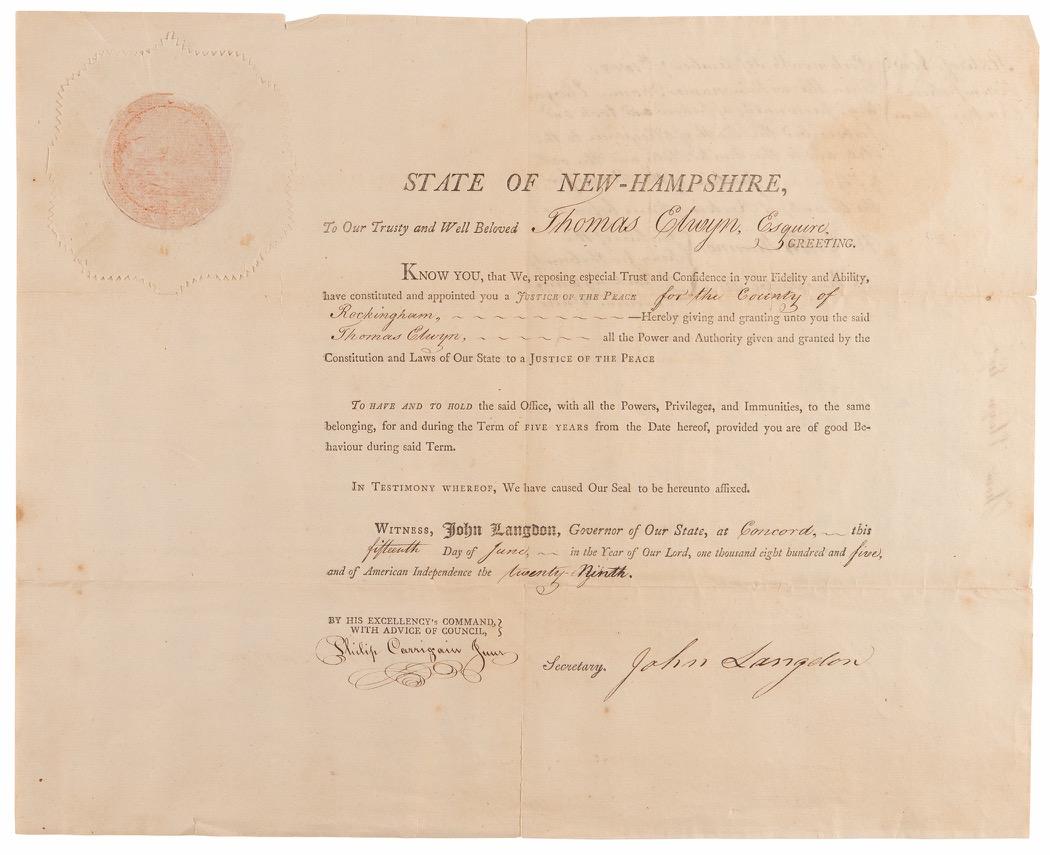 STATE OF NEW-HAMPSHIRE,
To Our Trusty and Well Beloved Thomas Elwyn, Esquire,
GREETING.
KNOW YOU, that We, reposing especial Trust and Confidence in your Fidelity and Ability,
have constituted and appointed you a JUSTICE OF THE PEACE for the County of
Rockingham, ——Hereby giving and granting unto you the said
Thomas Elwyn, all the Power and Authority given and granted by the
Constitution and Laws of Our State to a JUSTICE OF THE PEACE
TO HAVE AND TO HOLD the said Office, with all the Powers, Privileges, and Immunities, to the same
belonging, for and during the Term of FIVE YEARS from the Date hereof, provided you are of good Be-
haviour during said Term.
IN TESTIMONY WHEREOF, We have caused Our Seal to be hereunto affixed.
WITNESS, John Langdon, Governor of Our State, at Concord, this
fifteenth Day of June, in the Year of Our Lord, one thousand eight hundred and five,
and of American Independence the twenty-Ninth.
BY HIS EXCELLENCY's COMMAND,
WITH ADVICE OF COUNCIL,
Philip Carrigain Junr
Secretary. John Langdon